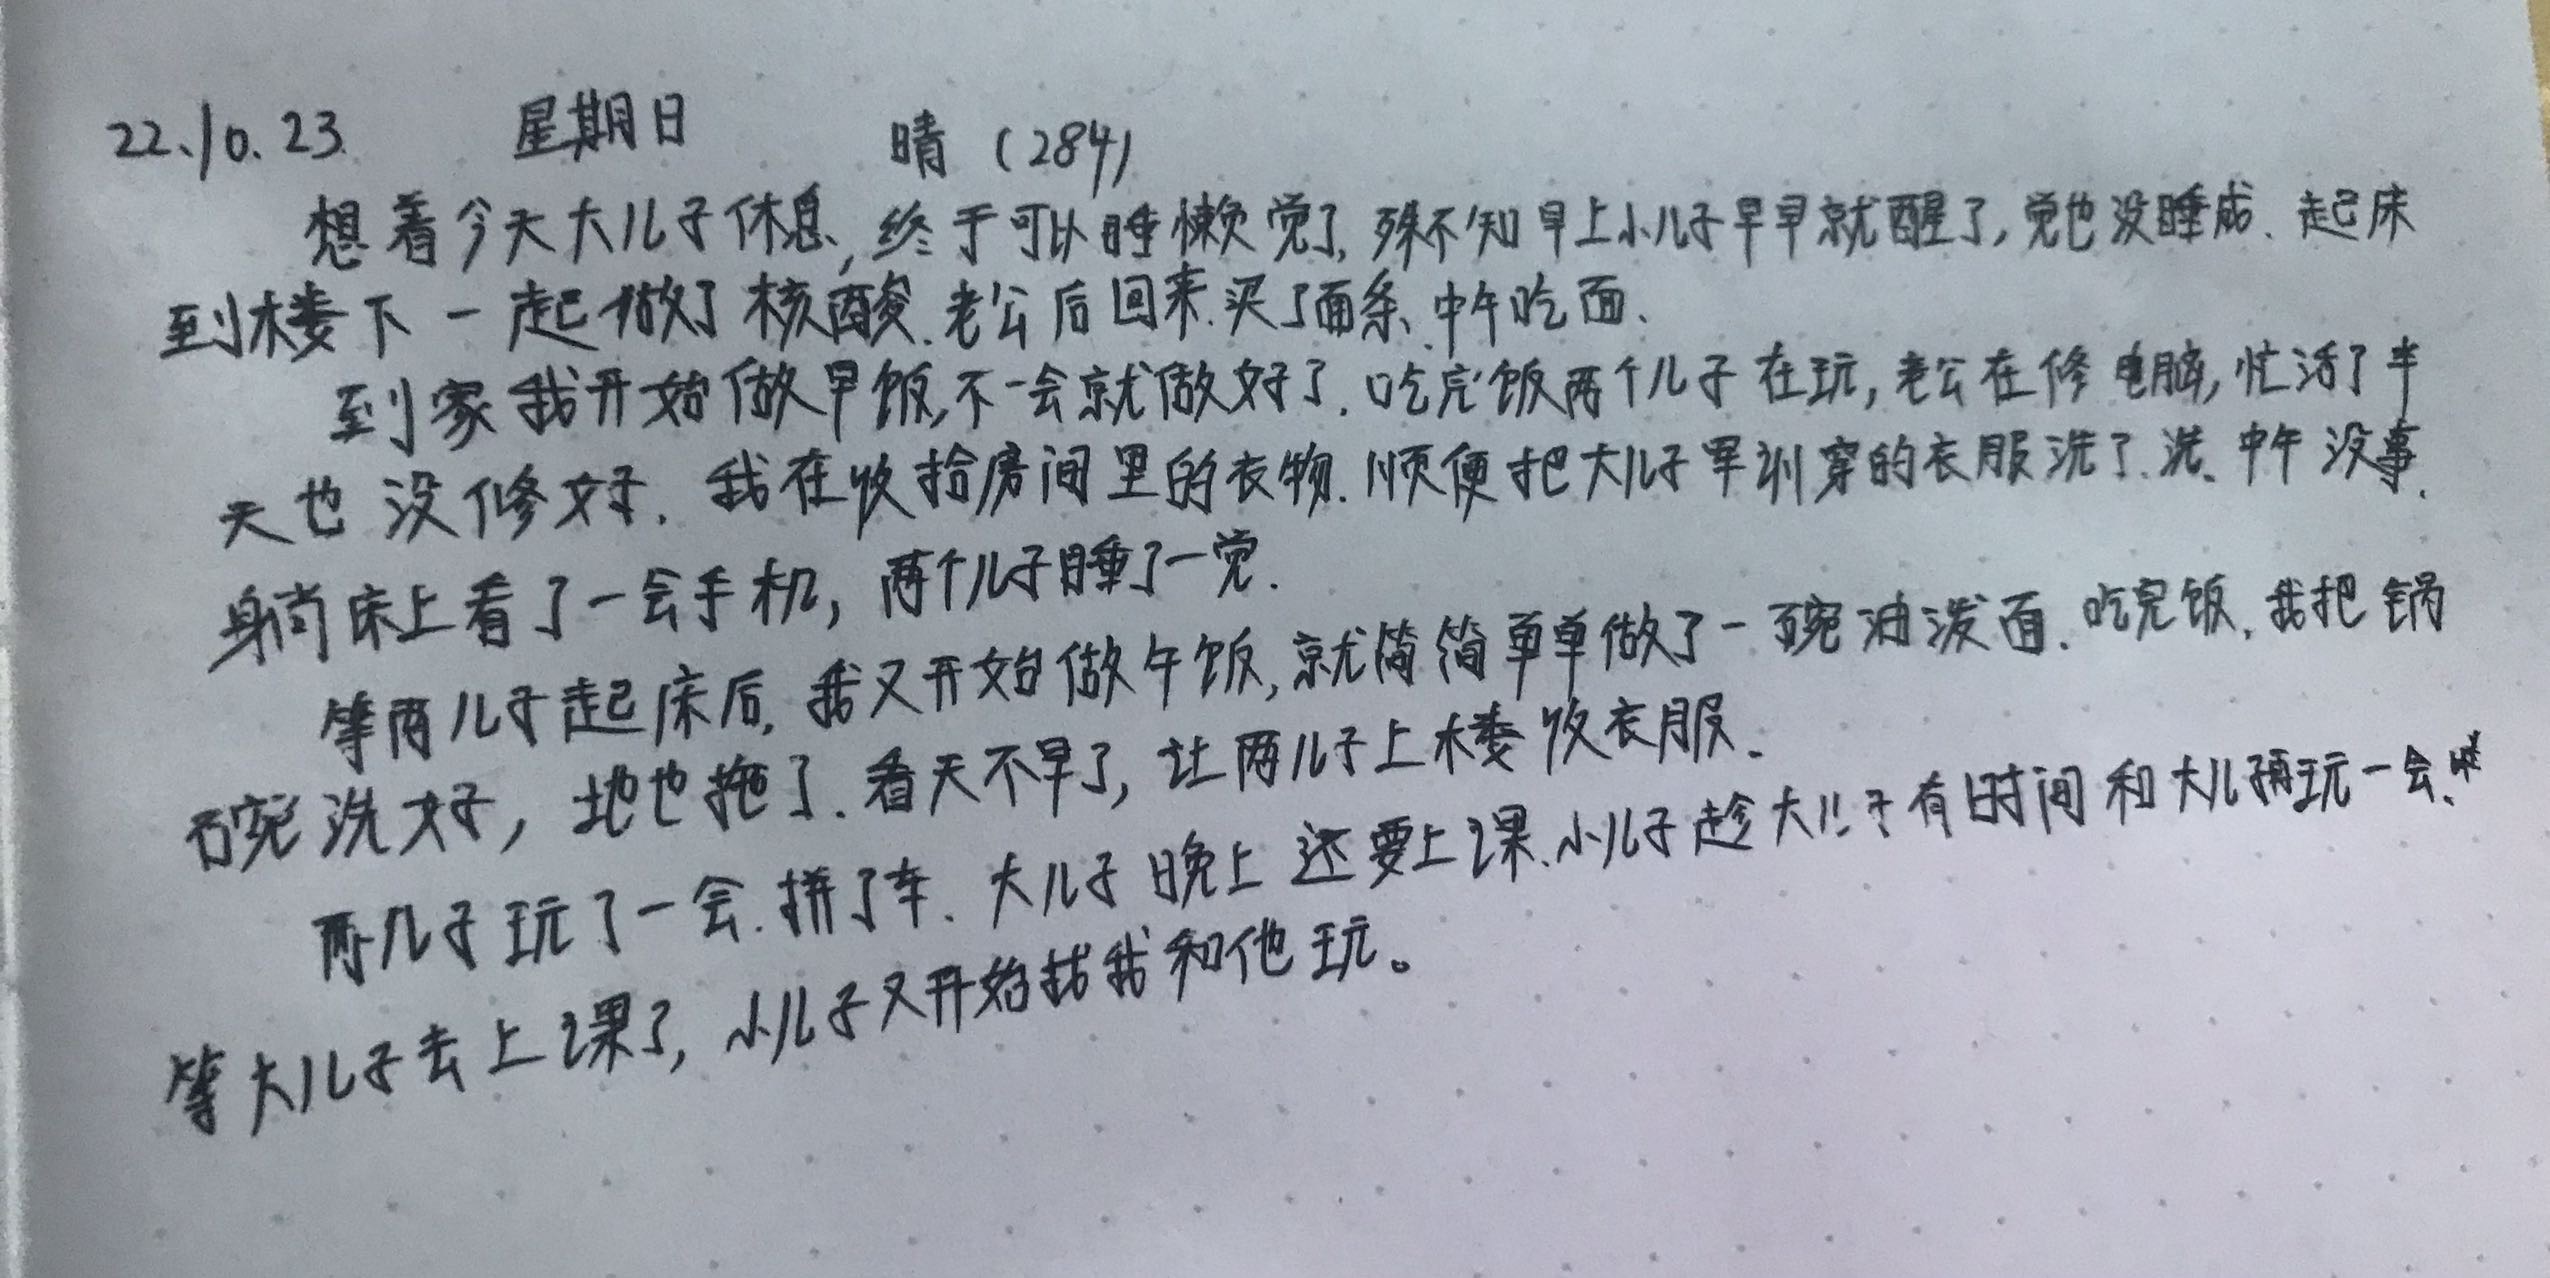 22.10.23. 星期日 晴（284）
想着今天大儿子休息，终于可以睡懒觉了，殊不知早上小儿子早早就醒了，觉也没睡成、起床
到楼下一起做了核酸.老公后回来.买了面条、中午吃面.
到家我开始做早饭,不一会就做好了.吃完饭两个儿子在玩,老公在修电脑,忙活了半
天也没修好.我在收拾房间里的衣物.顺便把大儿子军训穿的衣服洗了洗、中午没事.
躺床上看了一会手机,两个儿子睡了一觉.
等两儿子起床后,我又开始做午饭,就简简单单做了一碗油泼面.吃完饭,我把锅
碗洗好,地也拖了.看天不早了,让两儿子上楼收衣服.
两儿子玩了一会.拼了车.大儿子晚上还要上课.小儿子趁大儿子有时间和大儿子再玩一会.
等大儿子去上课了,小儿子又开始找我和他玩。